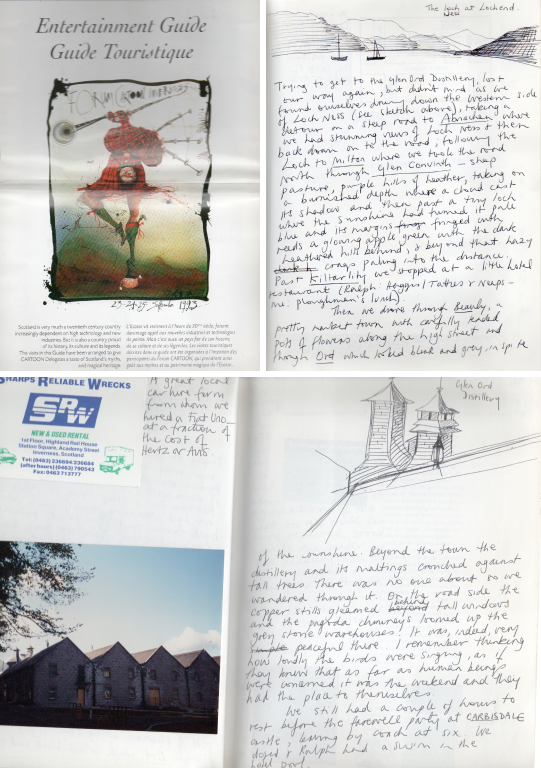 Entertainment Guide
Guide Touristique
23-24-25 1993
Scotland is very much a twentieth century country
increasingly dependent on high technology and new
industries. But it is also a country proud
of its history, its culture and its legends.
The visits in this Guide have been arranged to give
CARTOON Delegates a taste of Scotland's myths,
and magical heritage.
The loch at Lochend.
Ness
Trying to get to the Glen Ord Distillery, lost
our way again; but didn't mind as we
found ourselves driving down the Western side
of Loch Ness (see sketch above), taking a
detour on a steep road to Abriachan where
we had stunning views of Loch Ness & then
back down on to the road, following the
Loch to Milton where we took the road
north through Glen Convinth - sheep
pasture, purple hills of heather, taking on
a burnished depth where a cloud cast
its shadow and then past a tiny loch
where the sunshine had turned it pale
blue and its margins fringed with
reeds a glowing apple green with the dark
heathered hills behind, & beyond that hazy
crags paling into the distance.
Past Kiltarlity we stopped at a little hotel
restaurant (Ralph: Haggis, Tatties & Neaps -
me: ploughmen's lunch).
Then we drove through Beauly, a
pretty market town with carefully tended
pots of flowers along the high street and
through Ord which looked bleak and grey, in spite
SHARPS RELIABLE WRECKS
SRW
NEW & USED RENTAL
1st Floor, Highland Rail House
Station Square, Academy Street
Inverness, Scotland
Tel: (0463) 236694/236684
(after hours) (0463) 790543
Fax: 0463 712777
A great local
car hire firm
from whom we
hired a Fiat Uno
at a fraction of
the cost of
Hertz or Avis
Glen Ord
Distillery
of the sunshine. Beyond the town the
distillery and its maltings crouched against
tall trees. There was no one about so we
wandered through it. On the road side the
copper stills gleamed behind beyond tall windows
and the pagoda chimneys loomed up the
grey stone warehouses. It was, indeed, very
peaceful there. I remember thinking
how loudly the birds were singing, as if
they knew that as far as human beings
were concerned it was the weekend and they
had the place to themselves.
We still had a couple of hours to
rest before the farewell party at CARBISDALE
castle, leaving by coach at six. We
dozed & Ralph had a swim in the
hotel pool.